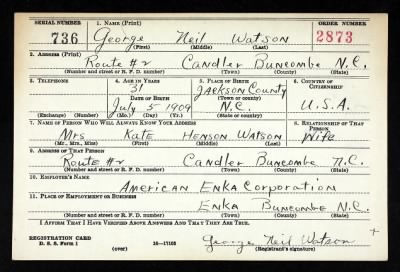 SERIAL NUMBER 1. NAME (Print) ORDER NUMBER
736 George Neil Watson 2873
(First) (Middle) (Last)
2. ADDRESS (Print)
Route #2 Candler Buncombe N.C.
(Number and street or R. F. D. number) (Town) (County) (State)
3. TELEPHONE 4. AGE IN YEARS 5. PLACE OF BIRTH 6. COUNTRY OF CITIZENSHIP
31 Jackson County
DATE OF BIRTH (Town or county)
July 5 1909 N.C. U.S.A.
(Exchange) (Number) (Mo.) (Day) (Yr.) (State or country)
7. NAME OF PERSON WHO WILL ALWAYS KNOW YOUR ADDRESS 8. RELATIONSHIP OF THAT PERSON
Mrs Kate Henson Watson Wife
(Mr., Mrs., Miss) (First) (Middle) (Last)
9. ADDRESS OF THAT PERSON
Route #2 Candler Buncombe N.C.
(Number and street or R. F. D. number) (Town) (County) (State)
10. EMPLOYER'S NAME
American Enka Corporation
11. PLACE OF EMPLOYMENT OR BUSINESS
Enka Buncombe N.C.
(Number and street or R. F. D. number) (Town) (County) (State)
I AFFIRM THAT I HAVE VERIFIED ABOVE ANSWERS AND THAT THEY ARE TRUE.
REGISTRATION CARD
D. S. S. Form 1 16-17105 George Neil Watson
(over) (Registrant's signature)